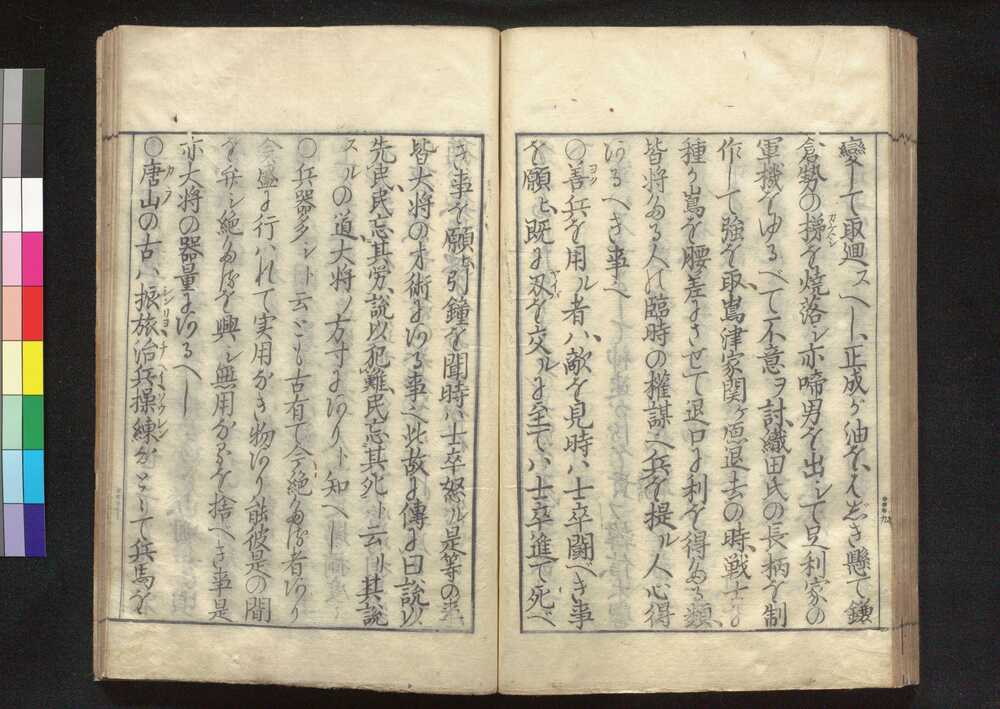 變して取廻スへし、正成が油をはぢき懸て鎌
倉勢の梯を焼落シ亦啼男を出シて足利家の
軍機をゆるべて不意ヲ討、織田氏の長柄を制
作して強を取、嶌津家関ヶ原退去の時、戦士に
種か嶌を腰差にさせて退口に利を得たる類、
皆将たる人の臨時の權謀也、兵を提ル人心得
あるべき事也
○善兵を用ル者ハ、敵を見時ハ士卒闘べき事
を願ヒ、既に刄を交ルに至てハ士卒進て死べ
き事を願ヒ、引鐘を聞時ハ士卒怒ル、是等の事
皆大将の才術にある事也、此故に傳に曰、説以
先民、民忘其労、説以犯難、民忘其死ト云リ、其説
スルの道大将ノ方寸にあり卜知へし
○兵器多シト云とも古有て今絶たる者あり
今盛に行ハれて実用なき物あり、能彼是の間
を弁シ絶たるを興シ無用なるを捨へき事是
亦大将の器量にあるへし
○唐山の古ハ、振旅治兵操練なとゝて兵馬を
カラ
シンリヨ